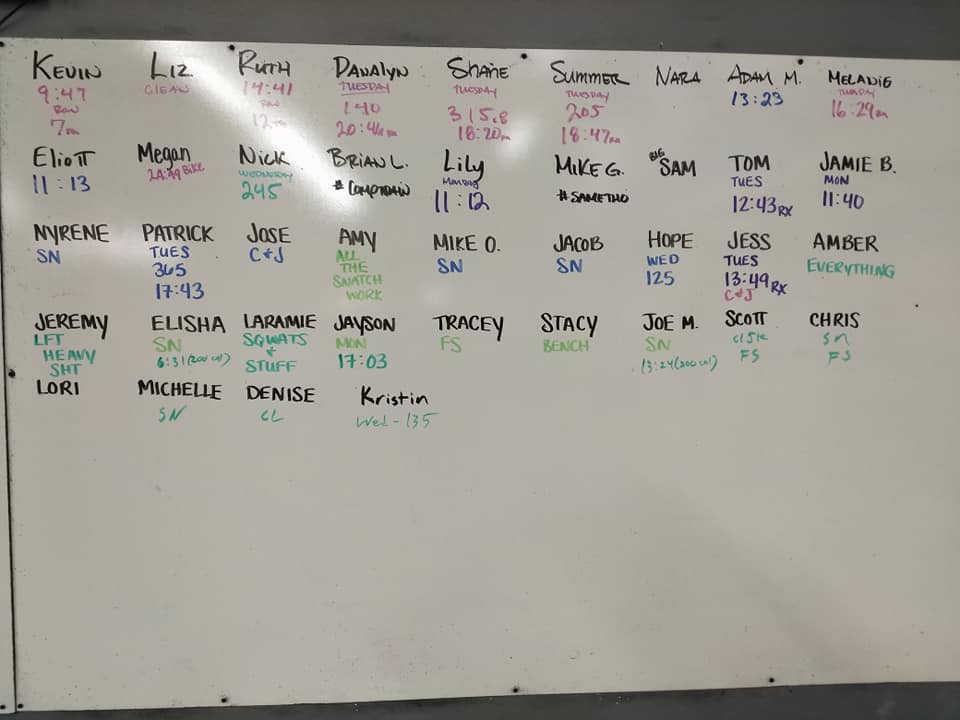 KEVIN LIZ RUTH DANALYN SHANE SUMMER NARA ADAM M. MELANIE
9:47 CLEAN 14:41 TUESDAY TUESDAY TUESDAY 13:23 TUESDAY
ROW ROW 190 315.8 205 16:29
7 12 20:46 18:20 18:47
ELIOTT MEGAN NICK BRIAN L. LILY MIKE G. BIG SAM TOM JAMIE B.
11:13 BIKE WEDNESDAY #COMPTRAIN MONDAY #SAMETHO TUES MON
245 11:12 12:43 RX 11:40
NYRENE PATRICK JOSE AMY MIKE O. JACOB HOPE JESS AMBER
SN TUES C&J ALL SN SN WED TUES EVERYTHING
365 THE 125 13:49 RX
17:43 SNATCH C&J
WORK
JEREMY ELISHA LARAMIE JAYSON TRACEY STACY JOE M. SCOTT CHRIS
LFT SN SQWATS MON FS BENCH SN SN
HEAVY 6:31 (200 cal) & 17:03 13:24 (200 cal) FS FS
SHT STUFF
LORI MICHELLE DENISE Kristin
SN CL Wed - 135